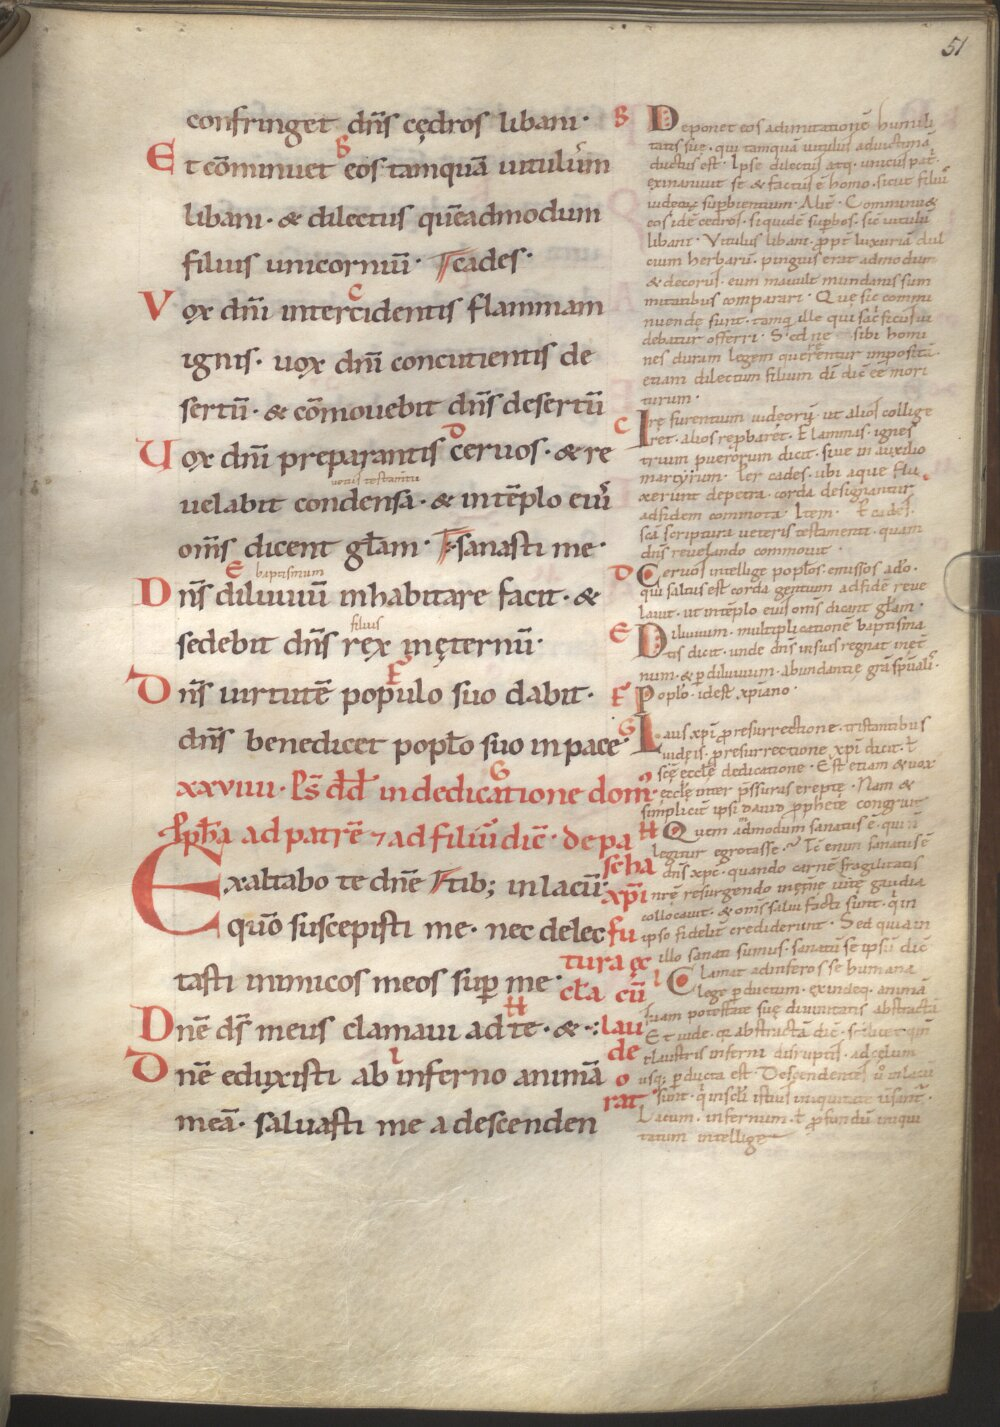 51
confringet dn̄s cędros libani·
Et cōminuet eos tamquā uitulum
libani· & dilectus quēadmodum
filius unicorniū· Teades·
Vox dnī intercidentis flammam
ignis· uox dnī concutientis de
sertū· & cōmouebit dn̄s desertū
Uox dnī preparantis ceruos· & re
ueteris testamti
uelabit condensa· & intēplo eius
omīs dicent glam· sanasti me·
baptismum
Dn̄s diluuiū inhabitare facit· &
filius
sedebit dn̄s rex inęternū·
Dn̄s uirtutē populo suo dabit·
dn̄s benedicet poplo suo in pace
xxviiii· Ps̄ dd̄ in dedicatione dom̊·
Ppħa ad patrē ⁊ ad filiū dic̄· de pa
scha
xpī
fu
tura ęx
cła cū
lau
de
o
rat
Exaltabo te dnē tib; in lacū·
quō suscepisti me· nec delec
tasti inimicos meos sup me·
Dnē ds̄ meus clamaui ad te· &·:
Dnē eduxisti ab inferno animā
meā· saluasti me a descenden
B Deponet eos ad imitationē humili
tatis suę· qui tamquā uitulus ad uictimā
ductus est· Ipse dilectus atq· unicus pat̄
exinaniuit se & factus ē homo· sicut filiī
iudeorum sup bientium· Alit̄· Comminu&
eos idē cedros· siquidē supbos· sic̄ uitulū
libani· Vitulus libani· ppt̄ luxuriā dul
cium herbarū· pinguis erat admodum
& decorus· eum mauult mundanis sum
mitatibus comparari· Quę sic commi
nuendę sunt· tamq ille qui sacrificiis ui
debatur offerri· Sed ne sibi homi
nes duram legem quererentur impositā·
etiam dilectum filium dī dic̄ eē mori
turum·
C Ire furentium iudeorum· ut alios collige
ret· alios repbaret· Flammas· ignes
trium puerorum dicit· siue in auxilio
martyrum· Per cades· ubi aque flu
xerunt de petra· corda designantur
ad fidem commota· Item· t̄ cades·
scā scriptura ueteris testamenti· quam
dn̄s reuelando commouit·
D Ceruos intellige poplos· emissos a do·
qui saltus est corda gentium ad fidē reue
lauit· ut in tēplo eius omīs dicant głam·
E Diluuium· multiplicationē baptisma
tis dicit· unde dn̄s in suis regnat inęt̄
num· & p diluuium· abundantię gr̄ę spūalis·
F Poplo· idest xpiano·
G Laus xpī p resurrectione· tristantibus
iudeis· p resurrectione xpī dicit· t̄
scę ecclę dedicatione· Est etiam & uox
ecclę inter pressuras ereptę· Nam &
simplicit̄ ipsi dauid pphetę congruit
H Quem admodum sanatus ē· qui n̄
legitur egrotasse· Ic̄ enim sanatus ē
dn̄s xpc̄· quando carnē fragilitatis
nrē resurgendo inęt̄nę uitę gaudia
collocauit· & om̄s salui facti sunt· qui in
ipso fidelit̄ crediderunt· Sed quia in
illo sanati sumus· sanatū se ipsū dic̄
I Clamat ad inferos se humana
lege p ductum· exindeq· animā
suam potestate suę diuinitatis abstractā
Et uide· q abstractā dic̄· scilicet qm̄
claustris inferni disruptis· ad cęlum
usq; p ducta est· Descendentes u̇ in lacū
sunt· qi in scłi istius iniquitate uersant̄·
Lacum· infernum· t̄ pfundū iniqui
tatum intellige